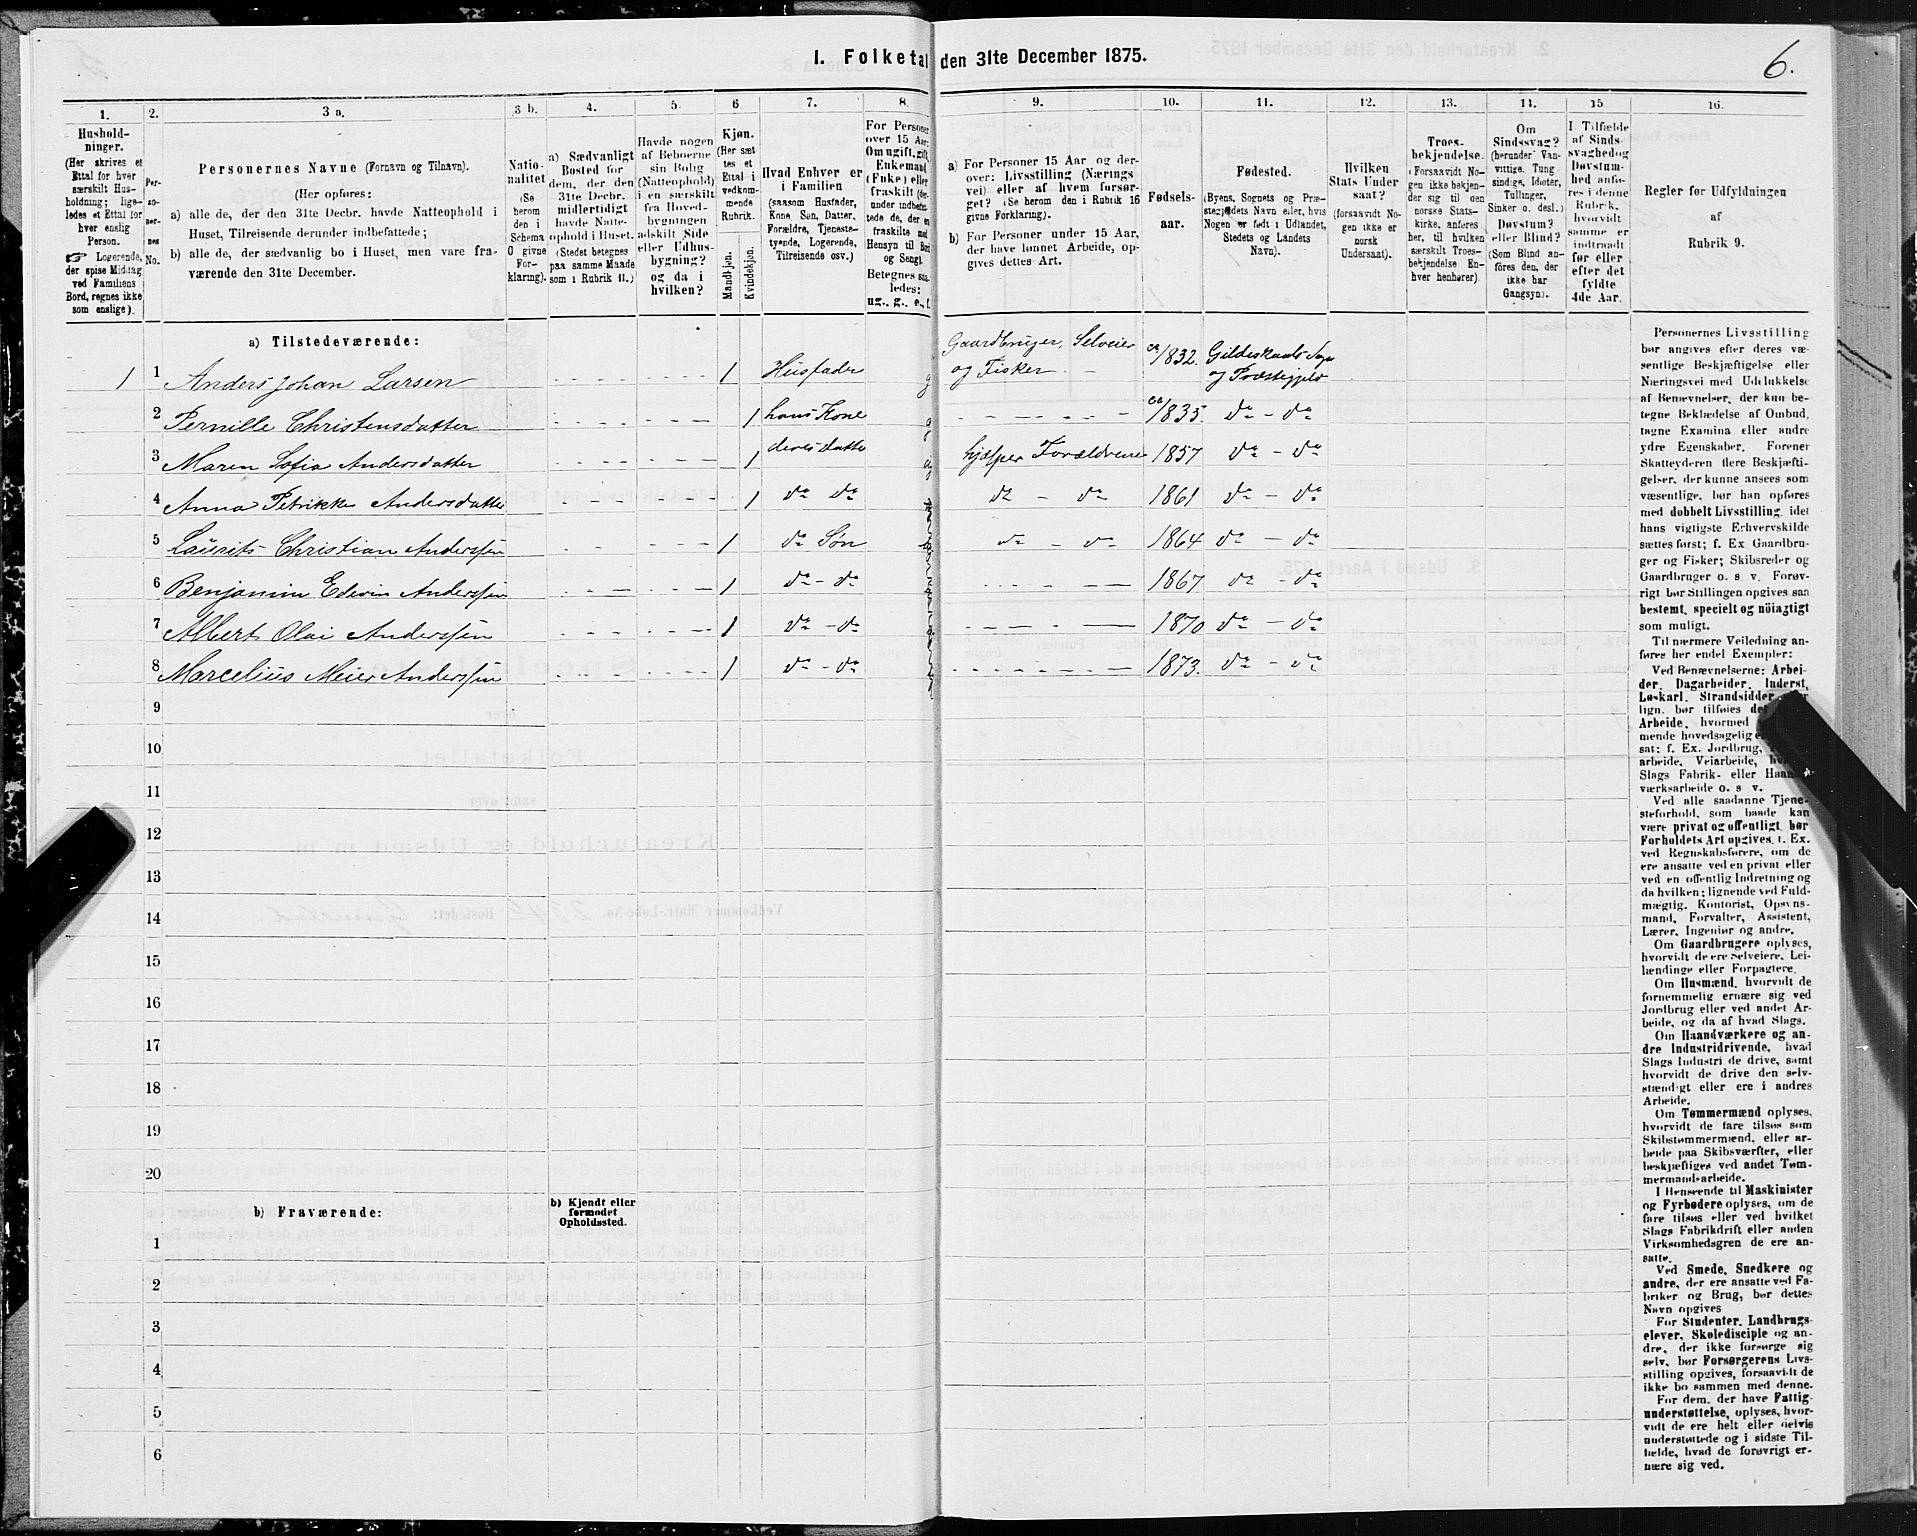 I. Folketal den 31te December 1875.
6.
1.
Hushold-
ninger.
(Her skrives et
Ettal for hver
særskilt Hus-
holdning; lige-
ledes et Ettal for
hver enslig
Person.
☞ Logerende,
der spise Middag
ved Familiens
Bord, regnes ikke
som enslige).
2.
Per-
so-
ner-
nes
No.
3 a.
Personernes Navne (Fornavn og Tilnavn).
(Her opføres:
a) alle de, der den 31te Decbr. havde Natteophold i
Huset, Tilreisende derunder indbefattede;
b) alle de, der sædvanlig bo i Huset, men vare fra-
værende den 31te December.
3 b.
Natio-
nalitet
(Se
herom
den i
Schema
O givne
For-
klaring).
4.
a) Sædvanligt
Bosted for
dem, der den
31te Decbr.
midlertidigt
havde Natte-
ophold i Huset.
(Stedet betegnes
paa samme Maade
som i Rubrik 11.)
5.
Havde nogen
af Beboerne
sin Bolig
(Natteophold)
i en særskilt
fra Hoved-
bygningen
adskilt Side-
eller Udhus-
bygning?
og da i
hvilken?
6
Kjøn.
(Her sæt
tes et
Ettal i
vedkom-
mende
Rubrik.
Mandkjøn.
Kvindekjøn.
7.
Hvad Enhver er
i Familien
(saasom Husfader,
Kone, Søn, Datter,
Forældre, Tjeneste-
tyende, Logerende,
Tilreisende osv.)
8.
For Personer
over 15 Aar:
Om ugift, gift,
Enkemand
(Enke) eller
fraskilt
Betegnes saa-
ledes:
ug., g., e., f.
9.
a) For Personer 15 Aar og der-
over: Livsstilling (Nærings
vei) eller af hvem forsør-
get? (Se herom den i Rubrik 16
givne Forklaring).
b) For Personer under 15 Aar,
der have lønnet Arbeide, op-
gives dettes Art.
10.
Fødsels-
aar.
11.
Fødested.
(Byens, Sognets og Præ-
stegjeldets Navn eller, hvis
Nogen er født i Udlandet,
Stedets og Landets
Navn).
12.
Hvilken
Stats Under
saat?
(forsaavidt No-
gen ikke er
norsk
Undersaat).
13.
Troes-
bekjendelse.
(Forsaavidt No-
gen ikke bekjen-
der sig til den
norske Stats-
kirke, anføres
her, til hvilken
særskilt Troes-
bekjendelse En-
hver henhører).
14.
Om
Sindssvag?
(herunder Van-
vittige. Tung
sindige, Idioter,
Tullinger,
Sinker o. desl.)
Døvstum?
eller Blind?
(Som Blind an-
føres den, der
ikke har
Gangsyn).
15
I Tilfælde
af Sinds-
svaghed og
Døvstum-
hed anfø-
res i denne
Rubrik,
hvorvidt
samme er
indtraadt
før eller
efter det
fyldte
4de Aar.
16.
Regler for Udfyldningen
af
Rubrik 9.
a) Tilstedeværende:
1 1 Anders Johan Larsen 1 Husfader g Gaardbruger, Selveier og Fisker ca 1832. Gildeskaals Sogn og Præstegjeld
2 Pernille Christensdatter 1 hans Kone g ca 1835. do - do
3 Maren Sofia Andersdatter 1 deres Datter ug hjælper Forældrene 1857 do - do
4 Anna Petrikke Andersdatter 1 do do do - do 1861 do - do
5 Laurits Christian Anderssen 1 do Søn do - do 1864 do - do
6 Benjamin Edvin Anderssen 1 do - do 1867 do - do
7 Albert Olai Anderssen 1 do - do 1870 do - do
8 Marcelius Meier Anderssen 1 do - do 1873. do - do
9
10
11
12
13
14
15
16
17
18
19
20
b) Fraværende:
b) Kjendt eller
formodet
Opholdssted.
1
2
3
4
5
6
Personernes Livsstilling
bør angives efter deres væ-
sentlige Beskjæftigelse eller
Næringsvei med Udelukkelse
af Benævnelser, der kun be-
tegne Beklædelse af Ombud,
tagne Examina eller andre
ydre Egenskaber. Forener
Skatteyderen flere Beskjæfti-
gelser, der kunne ansees som
væsentlige, bør han opføres
med dobbelt Livsstilling, idet
hans vigtigste Erhvervskilde
sættes først; f. Ex Gaardbru-
ger og Fisker; Skibsreder og
Gaardbruger o. s v. Forøv-
rigt bør Stillingen opgives saa
bestemt, specielt og nöiagtigt
som muligt.
Til nærmere Veiledning an-
føres her endel Exempler:
Ved Benævnelserne: Arbei-
der, Dagarbeider, Inderst,
Løskarl, Strandsidder
lign. bør tilføies
Arbeide, hvormed
mende hovedsagelig
sat: f. Ex. Jordbrug,
arbeide, Veiarbeide,
Slags Fabrik- eller Haand-
værksarbeide o. s v.
Ved alle saadanne Tjene-
steforhold, som baade kan
være privat og offentligt, bør
Forholdets Art opgives, t. Ex.
ved Regnskabsførere, om de
ere ansatte ved en privat eller
ved en offentlig Indretning og
da hvilken; lignende ved Fuld-
mægtig, Kontorist, Opsyns-
mand, Forvalter, Assistent,
Lærer, Ingeniør og andre.
Om Gaardbrugere oplyses,
hvorvidt de ere Selveiere, Lei-
lændinge eller Forpagtere.
Om Husmænd, hvorvidt de
fornemmelig ernære sig ved
Jordbrug eller ved andet Ar-
beide, og da af hvad Slags.
Om Haandværkere og an-
dre Industridrivende, hvad
Slags Industri de drive, samt
hvorvidt de drive den selv-
stændigt eller ere i andres
Arbeide.
Om Tømmermænd oplyses,
hvorvidt de fare tilsøs som
Skibstømmermænd, eller ar-
beide paa Skibsværfter, eller
beskjæftiges ved andet Tøm-
mermandsarbeide.
I Henseende til Maskinister
og Fyrbødere oplyses, om de
fare tilsøs eller ved hvilket
Slags Fabrikdrift eller anden
Virksomhedsgren de ere an-
satte.
Ved Smede, Snedkere og
andre, der ere ansatte ved Fa-
briker og Brug, bør dettes
Navn opgives
For Studenter, Landbrugs-
elever, Skoledisciple og an-
dre, der ikke forsørge sig
selv, bør Forsørgerens Livs-
stilling opgives, forsaavidt de
ikke bo sammen med denne.
For dem, der have Fattig-
understøttelse, oplyses, hvor-
vidt de ere helt eller delvis
understøttede og i sidste Til-
fælde, hvad de forøvrigt er-
nære sig ved.